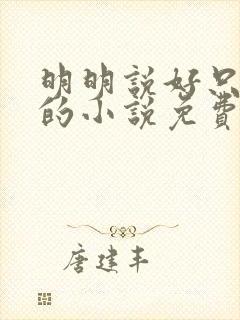 明明說好只
的小說免費
唐建丰